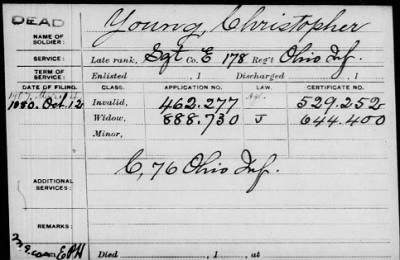 DEAD
NAME OF SOLDIER: Young, Christopher
SERVICE: Late rank, Sgt Co. E 178 Reg't Ohio Inf.
TERM OF SERVICE: Enlisted , 1 Discharged , 1
DATE OF FILING. CLASS. APPLICATION NO. LAW. CERTIFICATE NO.
Oct. 12 Invalid, 462.277 529.252
Widow, 888.730 J 644.400
Minor,
C, 76 Ohio Inf.
ADDITIONAL SERVICES:
REMARKS:
Died , 1 , at